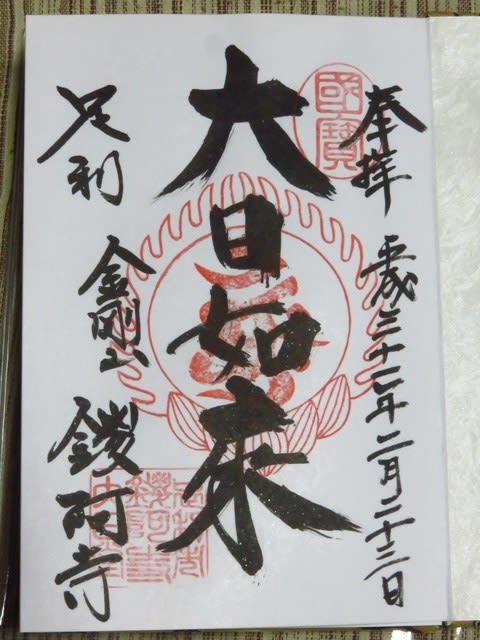 奉拝 平成三十一年二月二十三日
國寶
大日如来
足利 金剛山 鑁阿寺